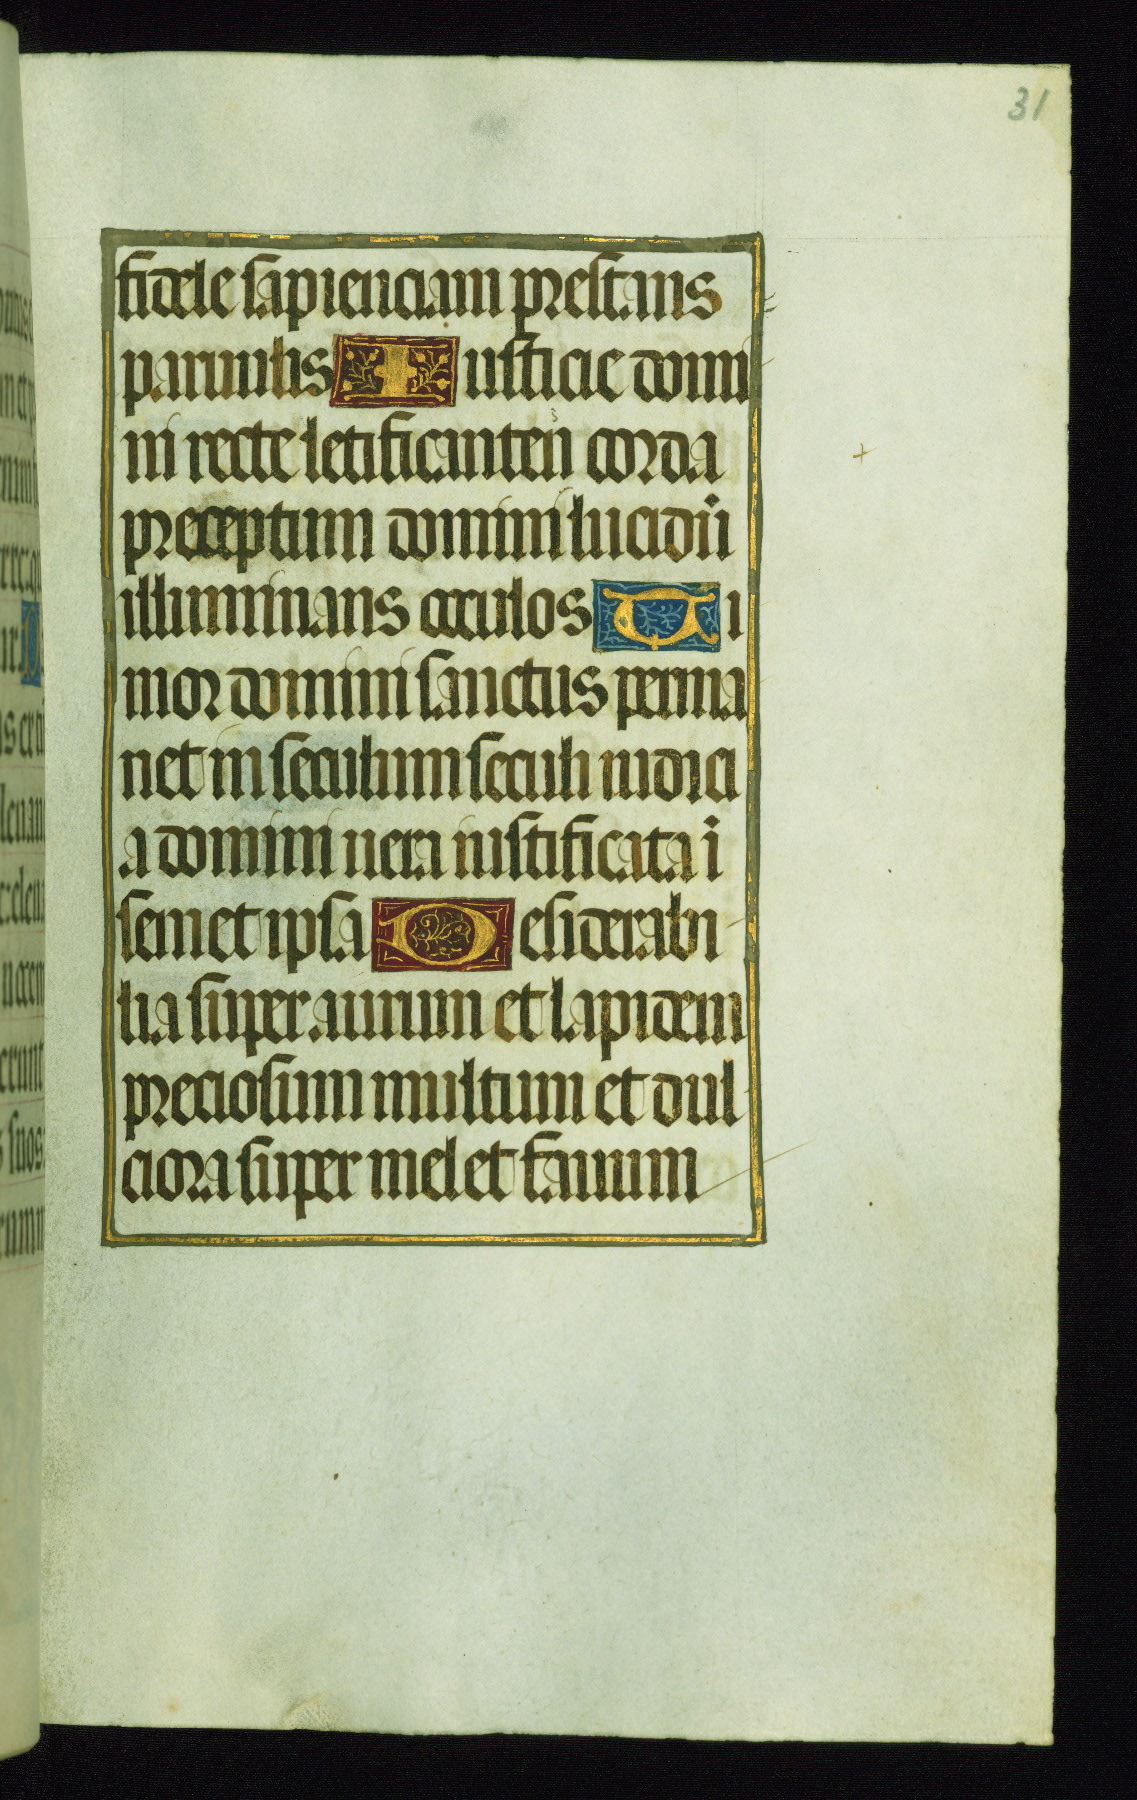 31
fidele sapienciam prestans
paruulis Iusticie domi
ni recte letificanten corda
preceptum domini lucidū
illuminans occulos Ti
mor domini sanctus perma
net in seculum seculi iudici
a domini uera iustificata ī
semet ipsa Desiderabi
lia super aurum et lapidem
preciosum multum et dul
ciora super mel et fauum